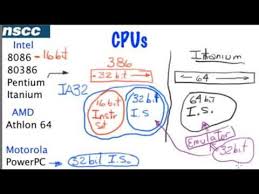 nscc
CPUs
Intel
8086 -16bit
80386
Pentium
Itanium
AMD
Athlon 64
Motorola
PowerPC
32bit I.S.
386
32bit
IA32
16bit
Instr
Set
32bit
I.S.
Itanium
64
64bit
I.S.
Emulator
32bit